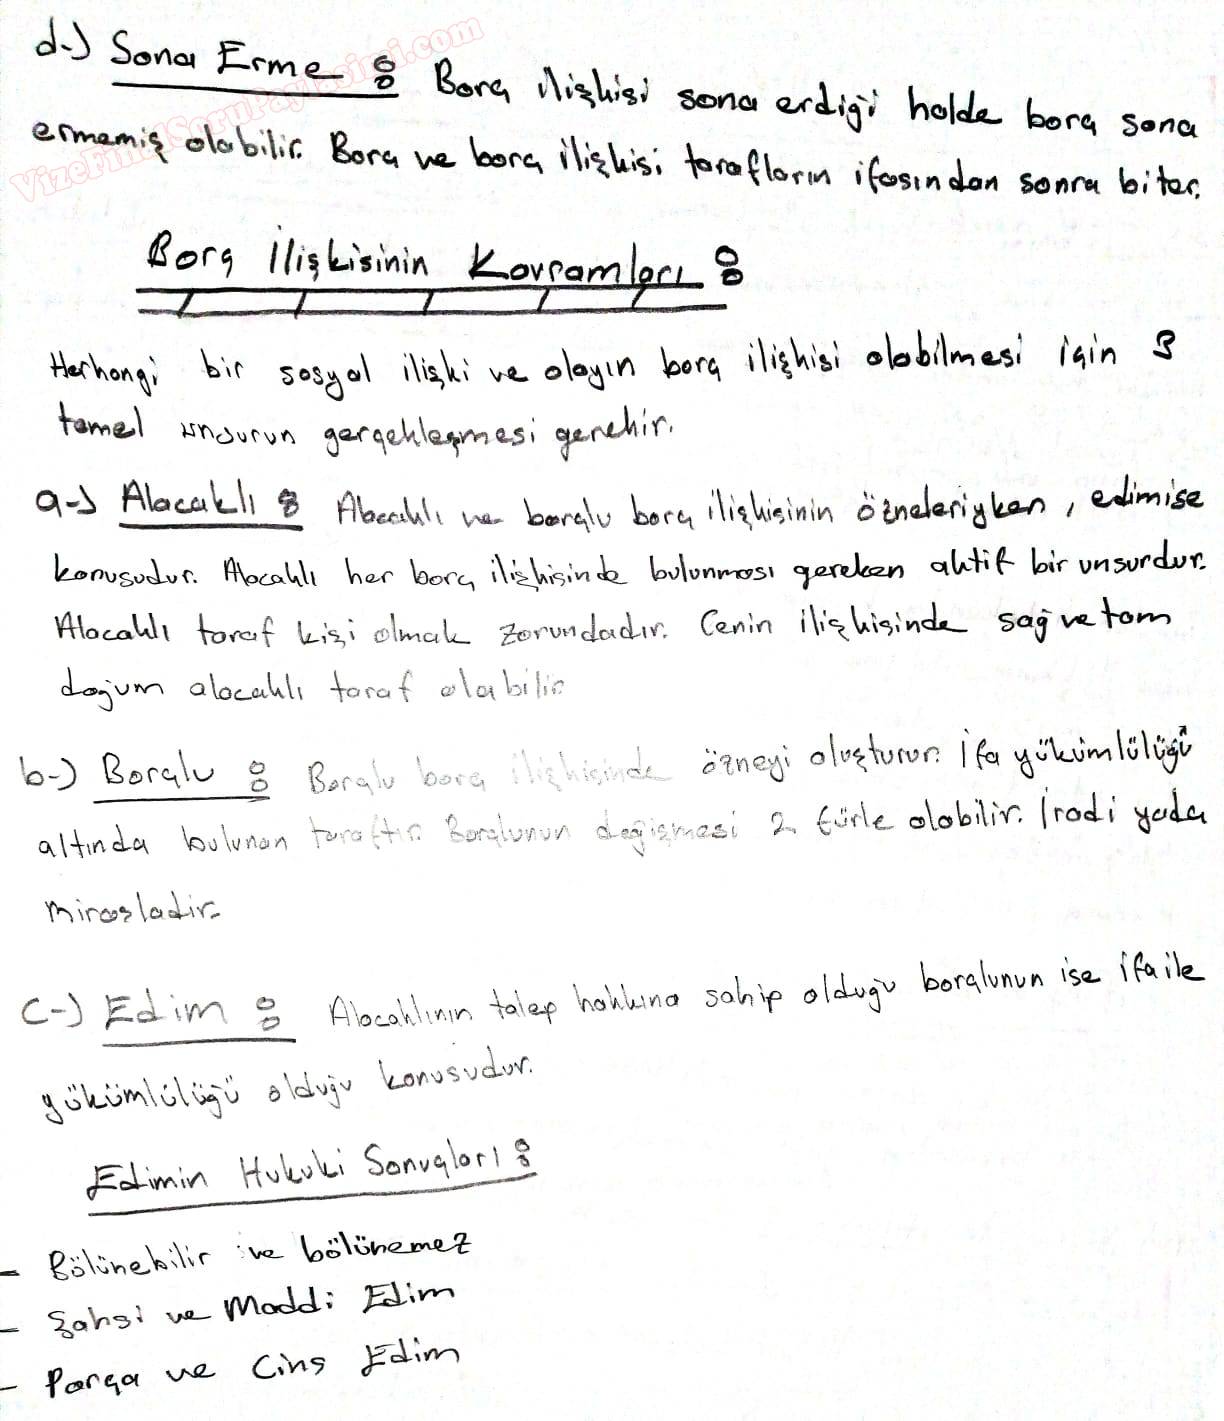 d-) Sona Erme : Borç ilişkisi sona erdiği halde borç sona
ermemiş olabilir. Borç ve borç ilişkisi tarafların ifasından sonra biter.
VizeFinalSoruPaylasimi.com
Borç İlişkisinin Kavramları :
Herhangi bir sosyal ilişki ve olayın borç ilişkisi olabilmesi için 3
temel unsurun gerçekleşmesi gerekir.
a-) Alacaklı : Alacaklı ve borçlu borç ilişkisinin özneleriyken, edimise
konusudur. Alacaklı her borç ilişkisinde bulunması gereken aktif bir unsurdur.
Alacaklı taraf kişi olmak zorundadır. Cenin ilişkisinde sağ ve tam
doğum alacaklı taraf olabilir
b-) Borçlu : Borçlu borç ilişkisinde özneyi oluşturur. İfa yükümlülüğü
altında bulunan taraftır. Borçlunun değişmesi 2 türle olabilir. İradi yada
mirasladır.
c-) Edim : Alacaklının talep hakkına sahip olduğu borçlunun ise ifa ile
yükümlülüğü olduğu konusudur.
Edimin Hukuki Sonuçları :
- Bölünebilir ve bölünemez
- Şahsi ve Maddi Edim
- Parça ve Cins Edim